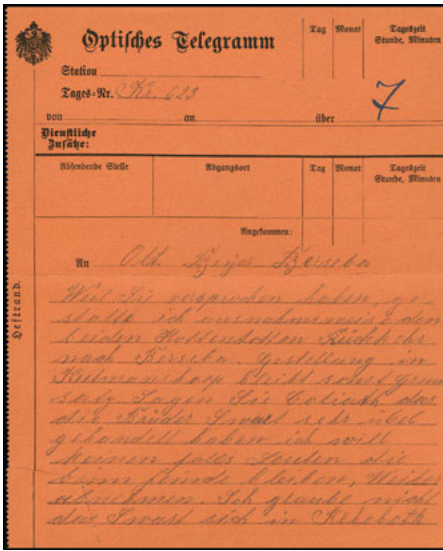 Optisches Telegramm
Tag Monat Tageszeit
Stunde, Minuten
Station
Tages-Nr. Ks. 623
7
von an über
Dienstliche
Zusätze:
Absendende Stelle Abgangsort Tag Monat Tageszeit
Stunde, Minuten
Angekommen:
An Berseba
Heftrand.
Weil Sie versprochen haben, ge-
statte ich ausnahmsweise den
beiden Hottentotten Rückkehr
nach Berseba. Gestellung in
Keetmanshoop bleibt sonst Grund
satz. Sagen Sie Goliath das
die Brüder Swart sehr übel
gehandelt haben ich will
keinen falls Leuten die
beim feinde bleiben, Weiber
abnehmen. Ich glaube nicht
das Swart sich in Rehoboth